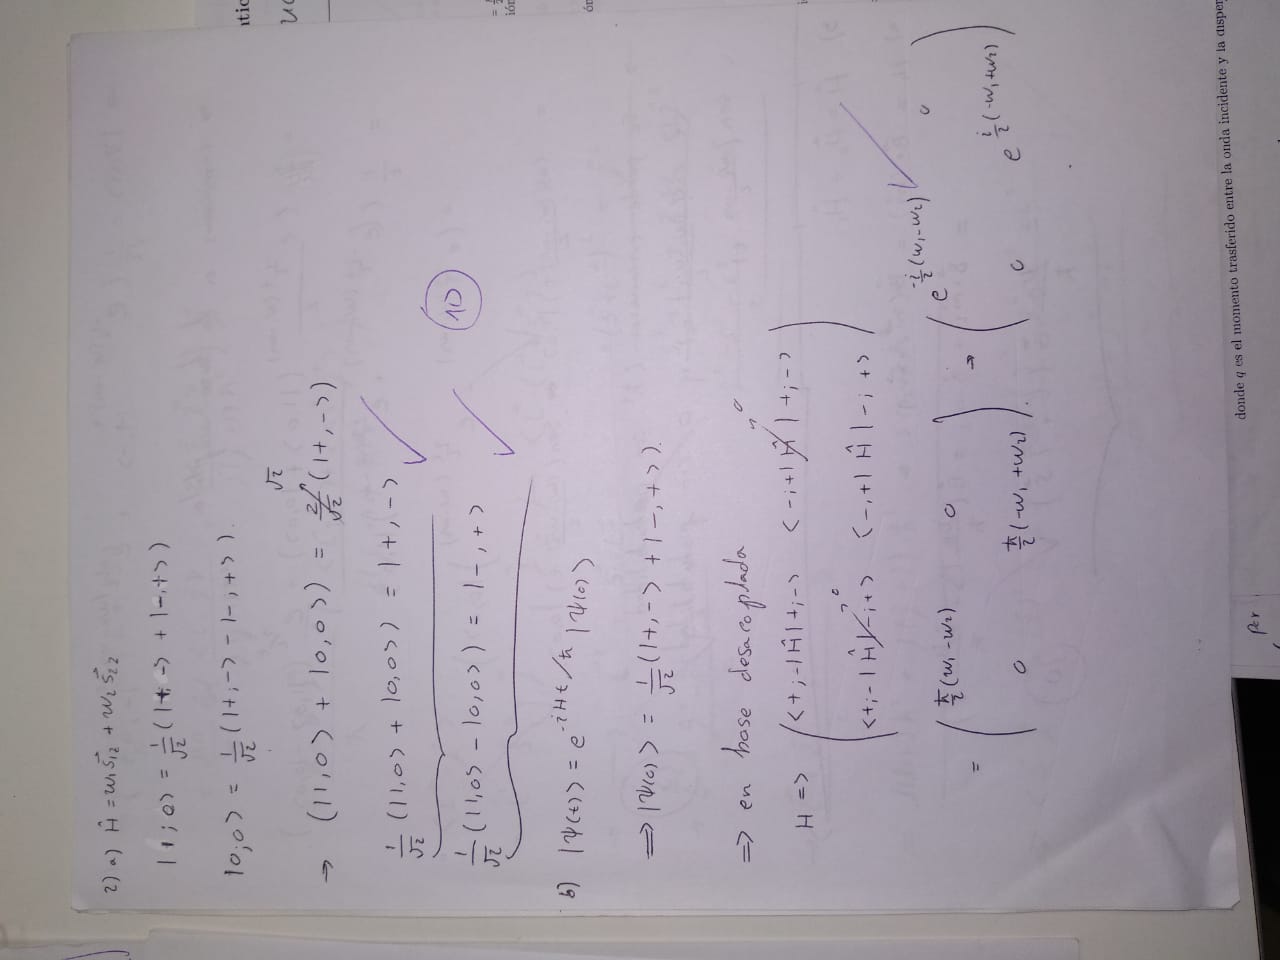 2) a) Ĥ = w₁S⃗₁₂ + w₂S⃗₂₂
|1;0> = 1/√2 (|+,-> + |-,+>)
|0;0> = 1/√2 (|+;-> - |-;+>).
→ (|1,0> + |0,0>) = 2/√2 √2 (|+,->)
1/√2 (|1,0> + |0,0>) = |+,->
1/√2 (|1,0> - |0,0>) = |-,+>
10
b) |Ψ(t)> = e^{-iHt/ħ} |Ψ(0)>
=> |Ψ(0)> = 1/√2 (|+,-> + |-,+>).
=> en base desacoplada
H => ( <+;-|Ĥ|+;-> <-;+|Ĥ|+;-> → 0
<+;-|Ĥ|-;+> → 0 <-,+|Ĥ|-;+> )
= ( ħ/2 (w₁-w₂) 0
0 ħ/2 (-w₁+w₂) ). → ( e^{-i/2 (w₁-w₂)} 0
0 e^{i/2 (-w₁+w₂)} )
donde q es el momento trasferido entre la onda incidente y la disper
per